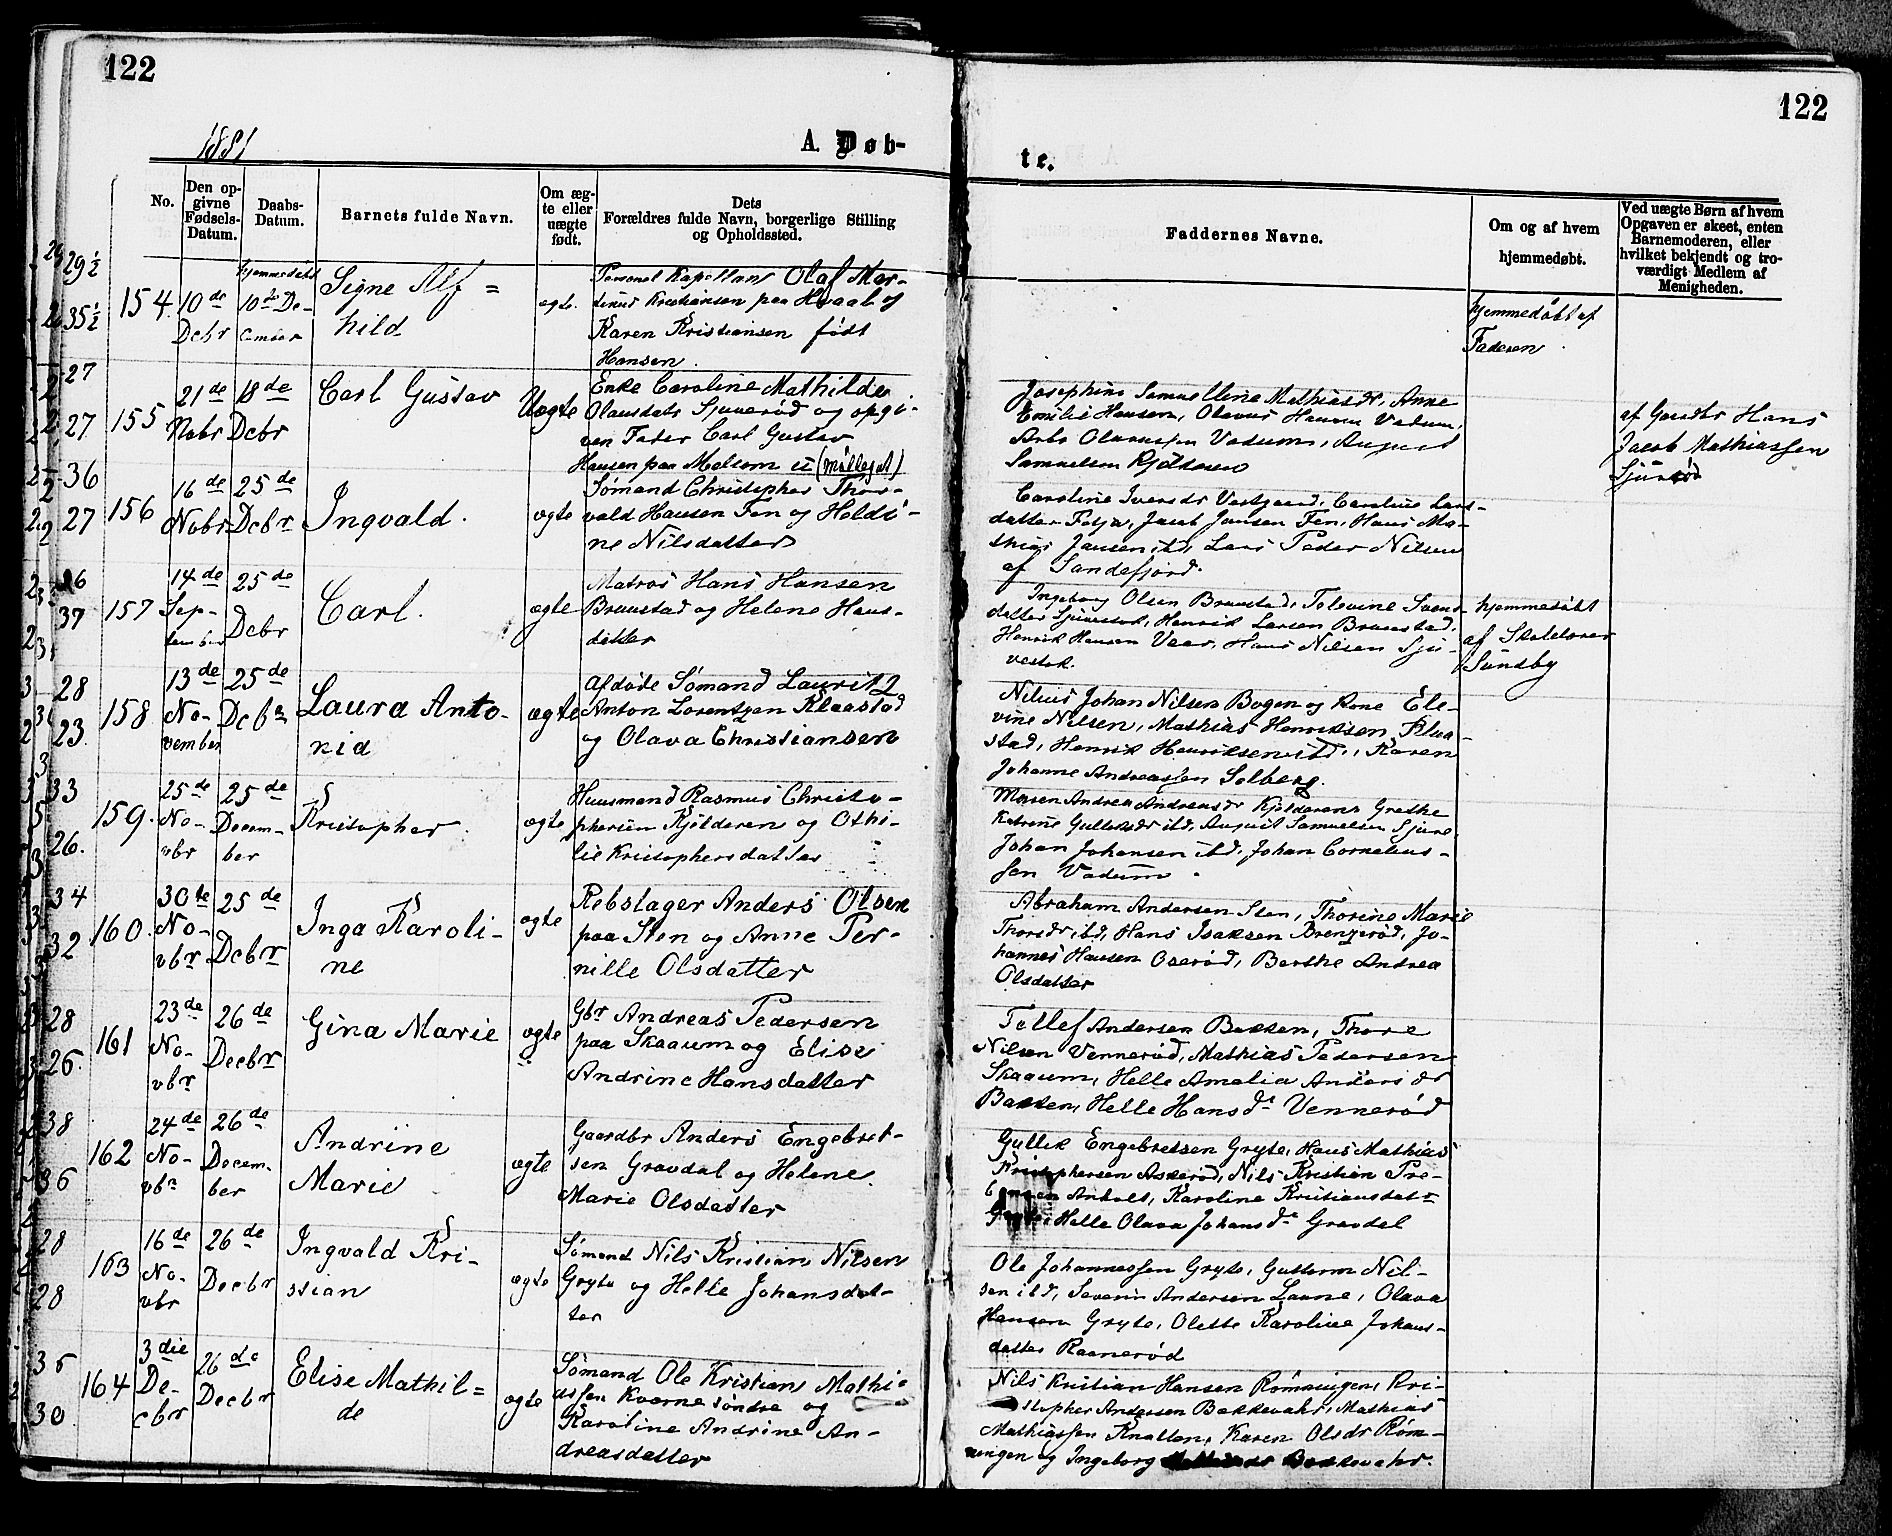 122
122
1881
A. Døb-
te.
No.
Den op-
givne
Fødsels-
Datum.
Daabs-
Datum.
Barnets fulde Navn.
Om æg-
te eller
uægte
født.
Dets
Forældres fulde Navn, borgerlige Stilling
og Opholdssted.
Faddernes Navne.
Om og af hvem
hjemmedøbt.
Ved uægte Børn af hvem
Opgaven er skeet, enten
Barnemoderen, eller
hvilket bekjendt og tro-
værdigt Medlem af
Menigheden.
29½
35½
154
10de
Decbr
hjemmedøbt
10de De-
cember
Signe Alf=
hild
ægte.
Personel Kapellan Olaf Mar-
tinus Kristiansen paa Hvaal og
Karen Kristiansen født
Hansen.
hjemmedøbt af
Faderen.
27
27
155
21de
Nobr
18de
Dcbr
Carl Gustav
Uægte
Enke Caroline Mathilde
Olausdatr Sjuerød og opgi-
ven Fader Carl Gustav
Hansen paa Melsom (møllegut)
Josephine Samuelline Mathiasdr, Anne
Emilie Hansen, Olavus Hansen Vadum,
Olavessen Vadum, August
Samuelsen Kjølderen
af Gaardbr Hans
Jacob Mathiassen
Sjuerød
36
27
156
16de
Nobr
25de
Dcbr
Ingvald.
ægte
Sømand Christopher Thor-
vald Hansen Fen og Holdi-
ne Nilsdatter
Caroline Iversdr Vestgaard, Caroline Lars-
datter, Jacob Jansen Fen, Hans Ma-
thias Jansen ibd, Lars Peder Nilsen
af Sandefjord.
26
37
157
14de
Sep-
tember
25de
Dcbr
Carl.
ægte
Matros Hans Hansen
Brunstad og Helene Hans-
datter
Ingeborg Olsen Brunstad, Tolevine Svens-
datter, Henrik Larsen Brunstad,
Henrik Hansen Veer, Hans Nilsen Sju-
vestok.
hjemmedøbt
af Skolelærer
Sundby
28
23
158
13de
No-
vember
25de
Dcbr
Laura Anto-
nia
ægte
Afdøde Sømand Lauritz
Anton Lorentzen Klaastad
og Olava Christiansen
Nilius Johan Nilsen Bogen og Kone Ele-
vine Nilsen, Mathias Henriksen Klaa-
stad, Henrik Henriksen ibd, Karen
Johanne Andreassen Solberg.
33
26.
159.
25de
No-
vbr
25de
Decem-
ber
Kristopher
ægte
Huusmand Rasmus Christo-
phersen Kjølderen og Othi-
lie Kristophersdatter
Maren Andrea Andreasdr Kjølderen, Grethe
Katrine Gulliksdr ibd, August Samuelsen
Johan Johansen ibd, Johan Cornelius-
sen Vadum.
34
32
160.
30te
No-
vbr
25de
Dcbr
Inga Karoli-
ne
ægte
Rebslager Anders Olsen
paa Sten og Anne Per-
nille Olsdatter
Abraham Andersen Sten, Thorine Marie
Thorsdr ibd, Hans Isaksen Brenjerød, Jo-
hannes Hansen Oserød, Berthe Andrea
Olsdatter
28
26.
161
23de
No-
vbr
26de
Decbr
Gina Marie
ægte
Gbr Andreas Pedersen
paa Skaaum og Elise
Andrine Hansdatter
Tellef Andersen Bakken, Thore
Nilsen Vennerød, Mathias Pedersen
Skaaum, Helle Amalia Andersdr
Bakken, Helle Hansdr Vennerød
38
36
162
24de
No-
vbr
26de
Decem-
ber
Andrine
Marie
ægte
Gaardbr Anders Engebret-
sen Gravdal og Helene
Marie Olsdatter
Gullik Engebretsen Gryte, Hans Mathias
Kristophersen Askerød, Nils Kristian Pre-
bensen, Karoline Kristiansdatr
Gryte, Helle Olava Johansdr Gravdal
28
28
163
16de
No-
vbr
26de
Decbr
Ingvald Kri-
stian
ægte
Sømand Nils Kristian Nilsen
Gryte og Helle Johansdat-
ter
Ole Johannessen Gryte, Guttorm Nil-
sen ibd, Severin Andersen Laune, Olava
Hansen Gryte, Olette Karoline Johans-
datter Ramnerød
35
30
164
3die
De-
cbr
26de
Decbr
Elise Mathil=
de
ægte
Sømand Ole Kristian Mathi-
assen Kverne søndre og
Karoline Andrine An-
dreasdatter
Nils Kristian Hansen Rømningen, Kri-
stopher Andersen Bakkevahr, Mathias
Mathiassen Knatten, Karen Olsdr Røm-
ningen og Ingeborg Bakkevahr.